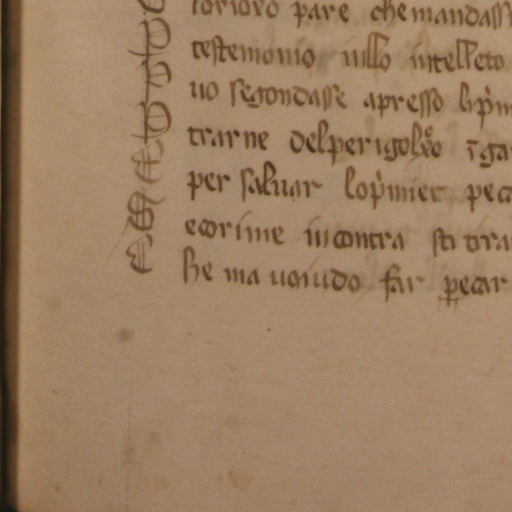 pare che mandass
testemonio in llo intelleto
uo segondasse apresso lip̉m
trarne del perigoloxo
per saluar lop̉mier pec
ecorime incontra sti tira
he ma uoiudo far ꝑecar